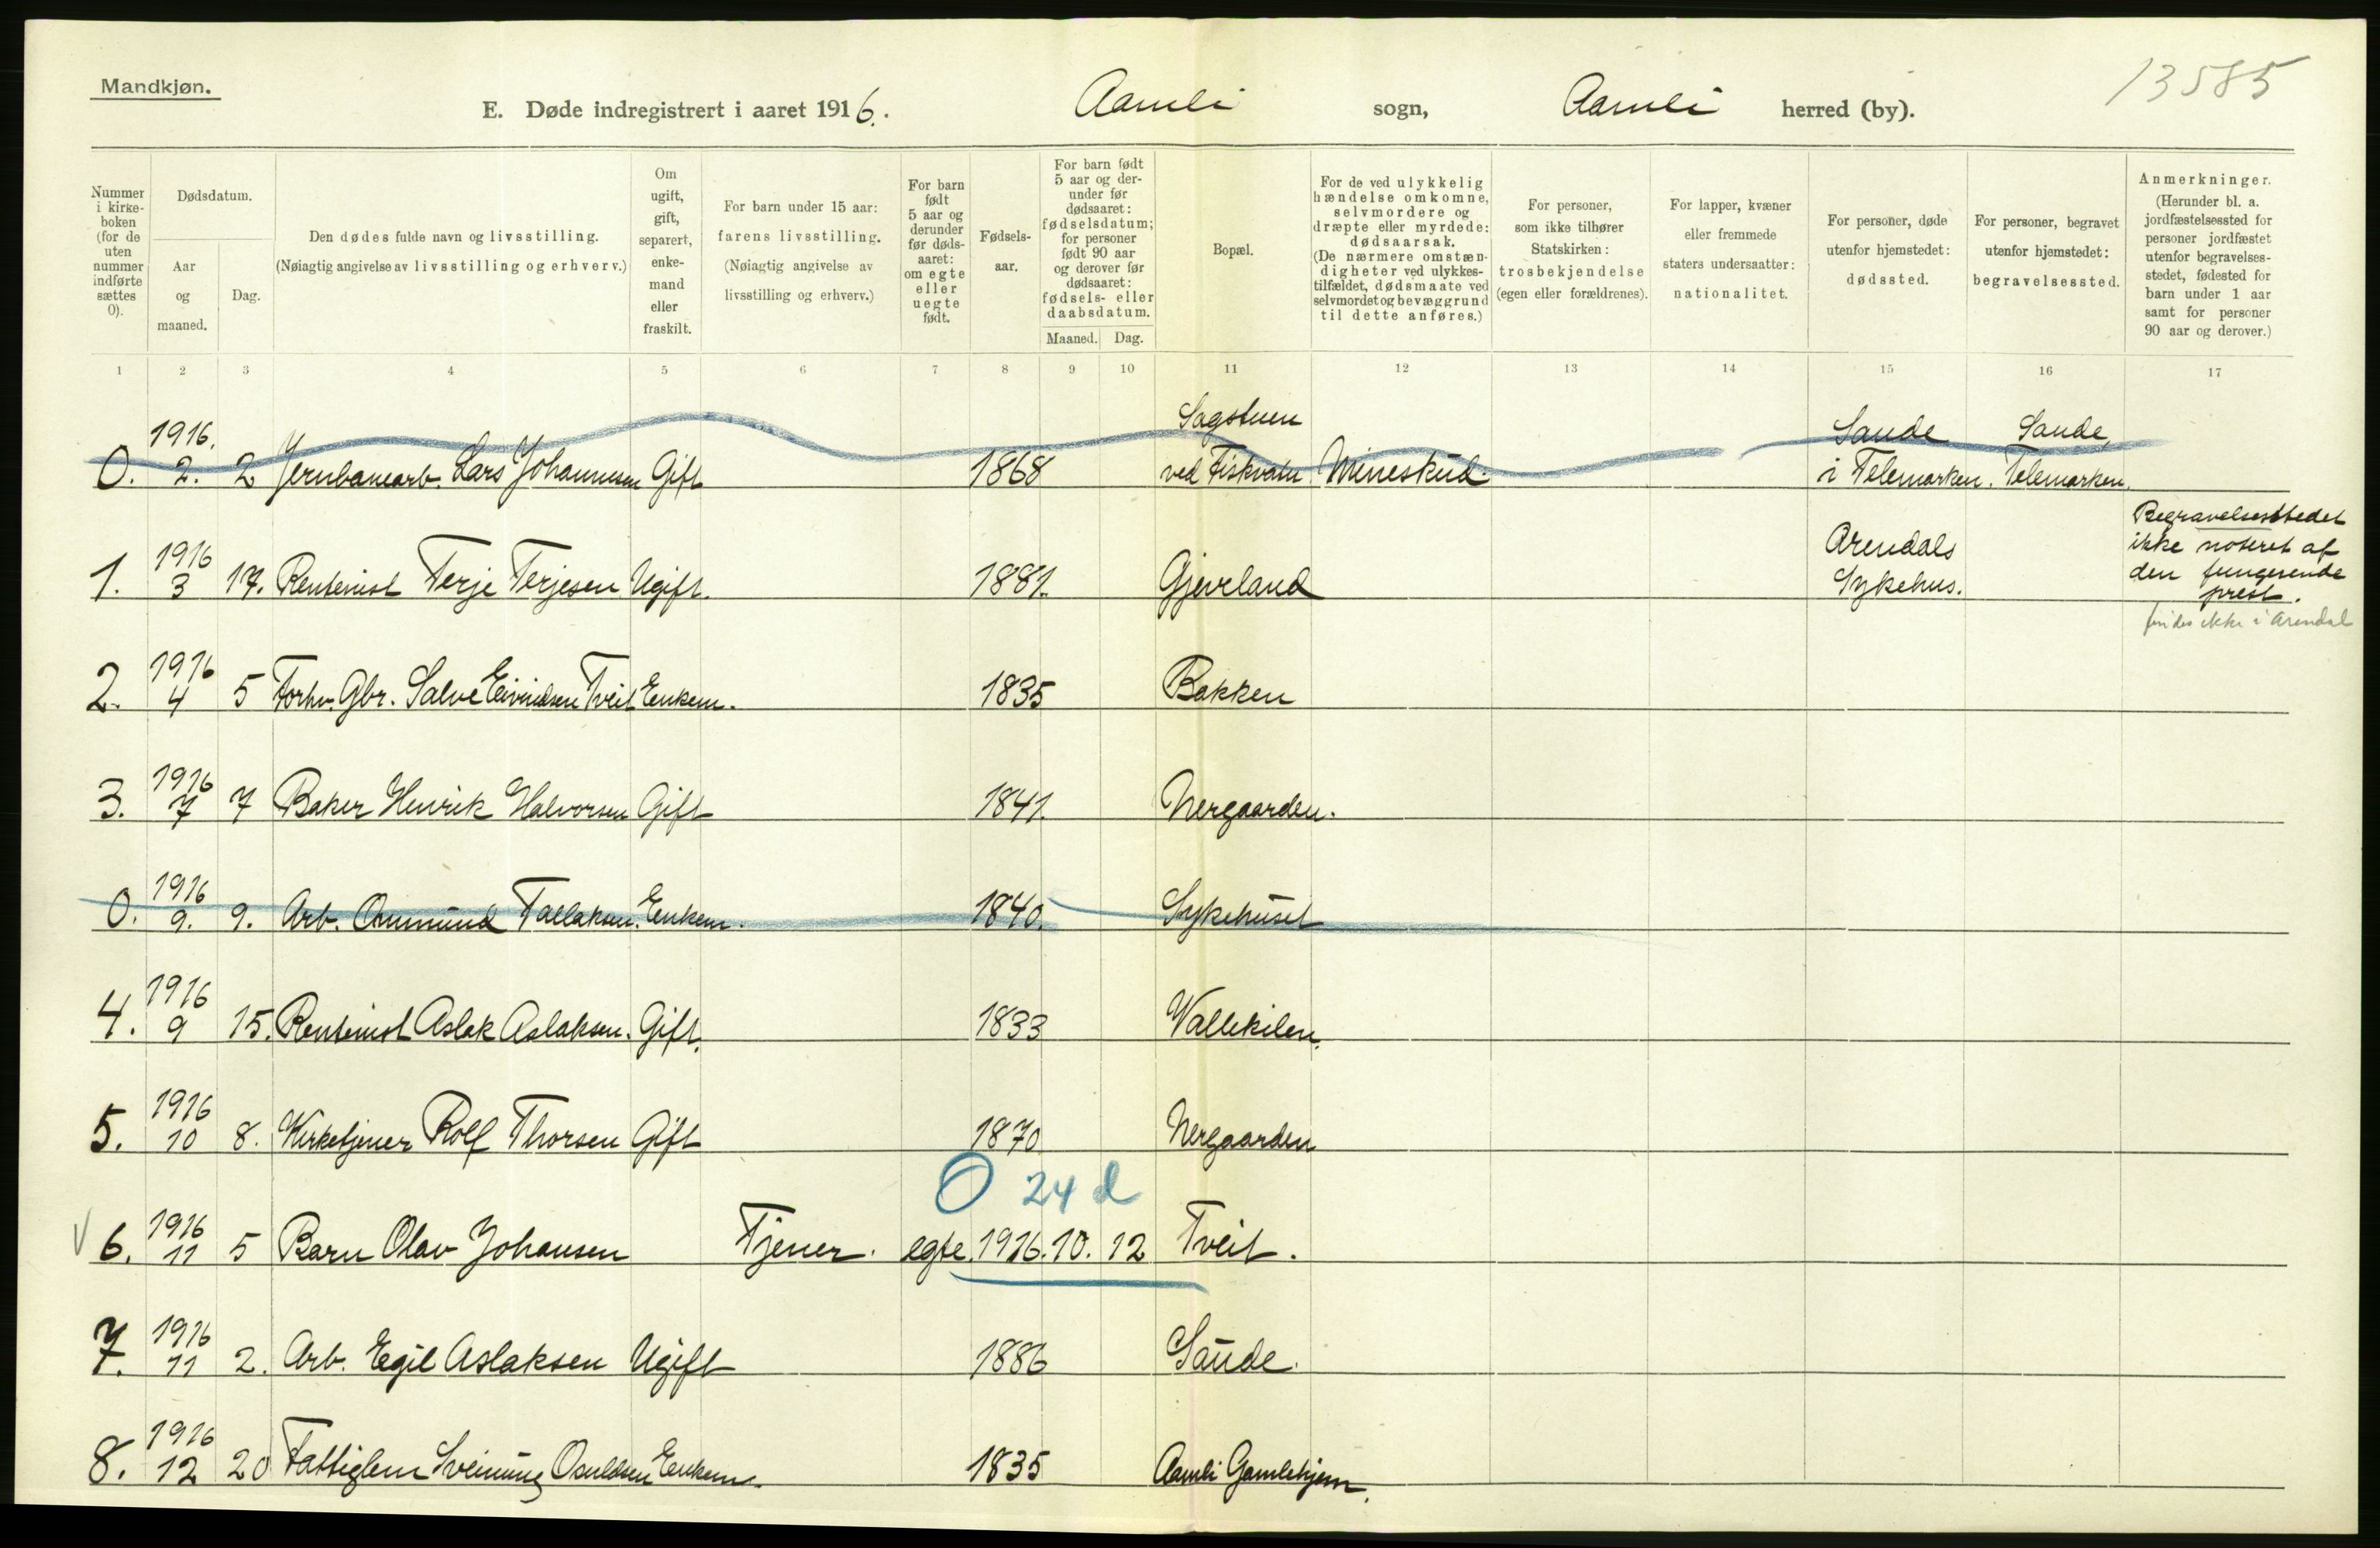 Mandkjøn.
13585
E. Døde indregistrert i aaret 1916. Aamli sogn, Aamli herred (by).
Nummer i kirke-boken (for de uten nummer indførte sættes 0).
Dødsdatum.
Aar og maaned.
Dag.
Den dødes fulde navn og livsstilling.
(Nøiagtig angivelse av livsstilling og erhverv.)
Om ugift, gift, separert, enke-mand eller fraskilt.
For barn under 15 aar: farens livsstilling.
(Nøiagtig angivelse av livsstilling og erhverv.)
For barn født 5 aar og derunder før døds-aaret: om egte eller uegte født.
Fødsels-aar.
For barn født 5 aar og der-under før dødsaaret: fødselsdatum; for personer født 90 aar og derover før dødsaaret: fødsels- eller daabsdatum.
Maaned. Dag.
Bopæl.
For de ved ulykkelig hændelse omkomne, selvmordere og dræpte eller myrdede: dødsaarsak.
(De nærmere omstæn-digheter ved ulykkes-tilfældet, dødsmaate ved selvmordet og bevæggrund til dette anføres.)
For personer, som ikke tilhører Statskirken: trosbekjendelse (egen eller forældrenes).
For lapper, kvæner eller fremmede staters undersaatter: nationalitet.
For personer, døde utenfor hjemstedet: dødssted.
For personer, begravet utenfor hjemstedet: begravelsessted.
Anmerkninger.
(Herunder bl. a. jordfæstelsessted for personer jordfæstet utenfor begravelses-stedet, fødested for barn under 1 aar samt for personer 90 aar og derover.)
1 2 3 4 5 6 7 8 9 10 11 12 13 14 15 16 17
1916. Sagstuen Sande Sande,
0. 2. 2 Jernbanearb. Lars Johannesen Gift 1868 ved Fiskvatn Mineskud. i Telemarken. Telemarken.
1916 Arendals Begravelsesstedet ikke noteret af
1. 3 17. Rentenist Terje Terjesen Ugift. 1881. Gjevland Sykehus. den fungerende prest.
findes ikke i Arendal
1916
2. 4 5 Forhv. Gbr. Salve Eivindsen Tveit Enkem. 1835 Bakken
1916
3. 7 7 Baker Henrik Halvorsen Gift 1841. Nergaarden.
1916
0. 9. 9. Arb. Ommund Tallaksen. Enkem. 1840. Sykehuset
1916
4. 9 15. Rentenist Aslak Aslaksen. Gift. 1833 Vallekilen.
1916
5. 10 8. Kirketjener Rolf Thorsen Gift 1870 Nergaarden
0 24 d
1916
V 6. 11 5 Barn Olav Johansen Tjener. egte. 1916. 10. 12 Tveit.
1916
7. 11 2. Arb. Egil Aslaksen Ugift 1886 Saude.
1916
8. 12 20 Fattiglem Sveinung Osuldsen Enkem. 1835 Aamli Gamlehjem.